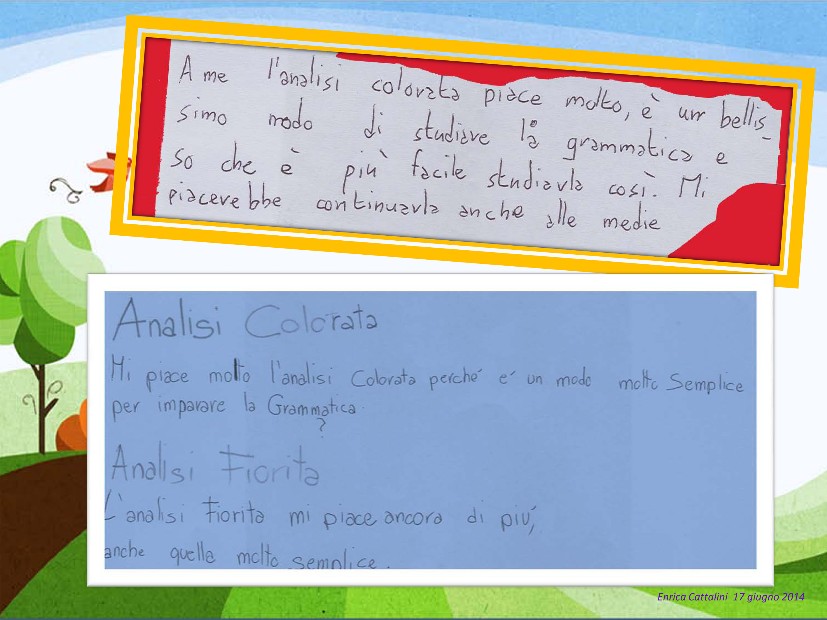 A me l'analisi colorata piace molto, è un bellis_
simo modo di studiare la grammatica e
so che è più facile studiarla così. Mi
piacerebbe continuarla anche alle medie
Analisi Colorata
Mi piace molto l'analisi Colorata perché é un modo molto Semplice
per imparare la Grammatica
?
Analisi Fiorita
L'analisi Fiorita mi piace ancora di piú,
anche quella molto semplice.
Enrica Cattalini 17 giugno 2014